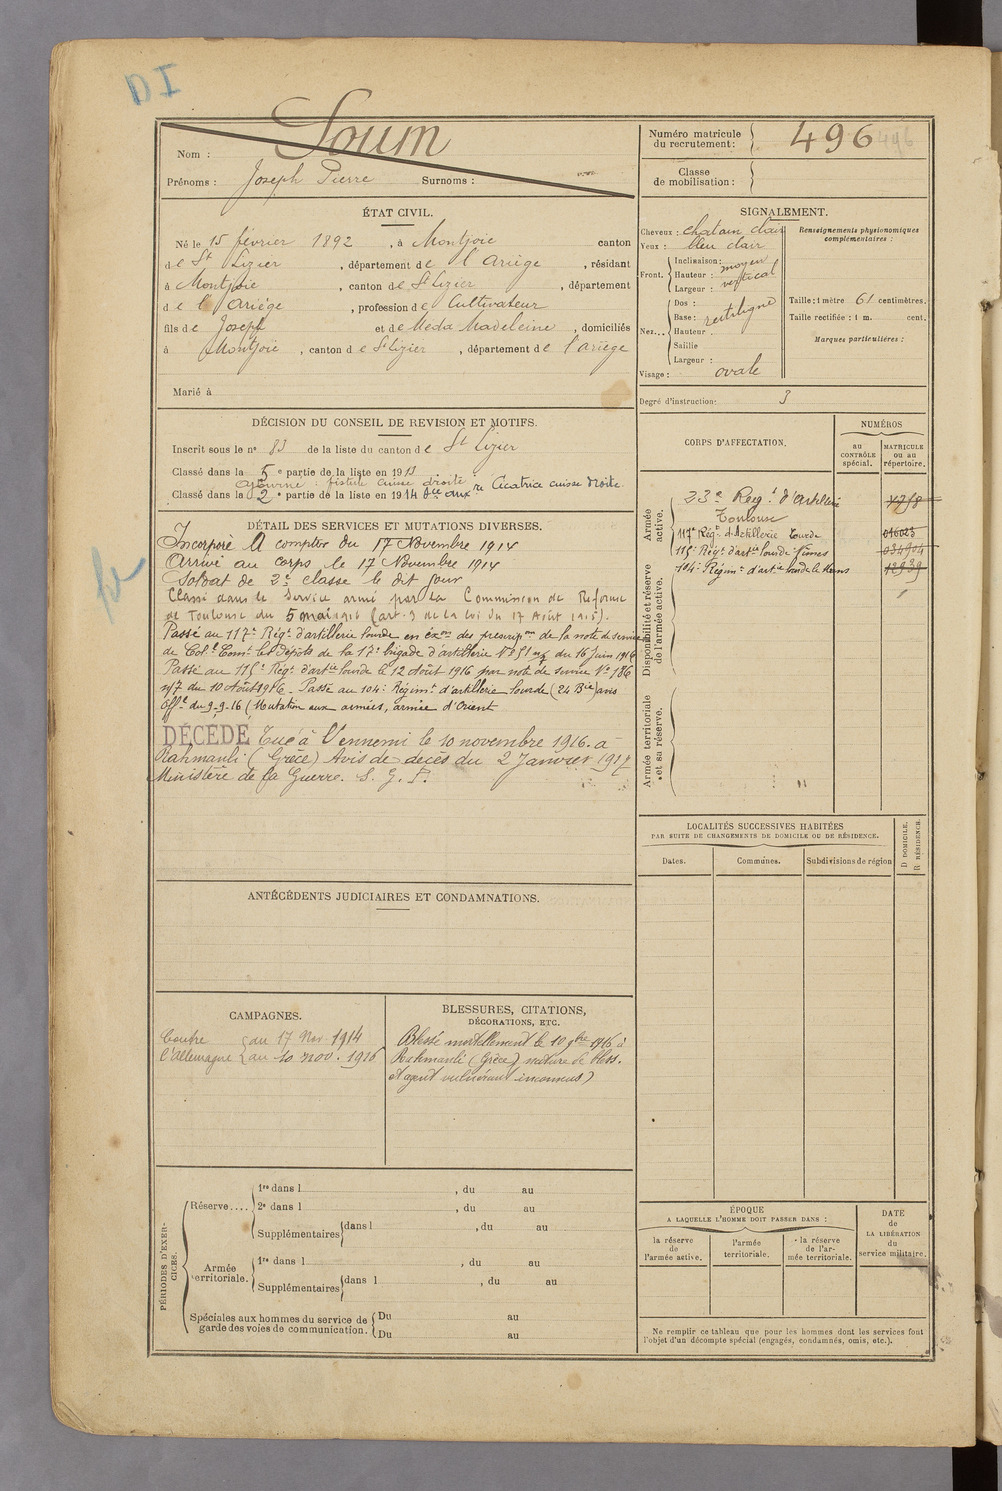 DI
Nom : Soum
Prénoms : Joseph Pierre Surnoms :
Numéro matricule du recrutement : 496
Classe de mobilisation :
ÉTAT CIVIL.
Né le 15 février 1892, à Montjoie canton
de St Lizier, département de l'Ariège, résidant
à Montjoie, canton de St Lizier, département
de l'Ariège, profession de Cultivateur
fils de Joseph et de Meda Madeleine, domiciliés
à Montjoie, canton de St Lizier, département de l'ariège
Marié à
SIGNALEMENT.
Cheveux : chatain clair
Yeux : bleu clair
Front. Inclinaison : moyen
Hauteur : vertical
Largeur :
Nez... Dos : rectiligne
Base :
Hauteur :
Saillie
Largeur :
Visage : ovale
Renseignements physionomiques complémentaires :
Taille : 1 mètre 61 centimètres.
Taille rectifiée : 1 m. cent.
Marques particulières :
Degré d'instruction : 3
DÉCISION DU CONSEIL DE REVISION ET MOTIFS.
Inscrit sous le n° 83 de la liste du canton de St Lizier
Classé dans la 5e partie de la liste en 1913
Ajourné : fistule cuisse droite
Classé dans la 2e partie de la liste en 1914 Sce aux re Cicatrice cuisse droite.
DÉTAIL DES SERVICES ET MUTATIONS DIVERSES.
Incorporé A compter du 17 Novembre 1914
Arrivé au corps le 17 Novembre 1914
Soldat de 2e classe le dit jour
Classé dans le Service armé par la Commission de Réforme
de Toulouse du 5 mai 1916 (art. 3 de la loi du 17 Août 1915).
Passé au 117e Régt d'artillerie lourde en éxon des prescripons de la note de service
de Col. Comt les dépôts de la 17e brigade d'artillerie du 16 Juin 1916
Passé au 115e Régt d'artie lourde le 12 Août 1916 par note de service N° 786
7/7 du 10 Août 1916 - Passé au 104e Régimt d'artillerie lourde (24 Bie) avis
Offel du 9-9-16 (Mutation aux armées, armée d'Orient
DÉCÉDÉ Tué à l'ennemi le 10 novembre 1916. à
Rahmanli (Grèce) Avis de décès du 2 Janvier 1917
Ministère de la Guerre. S. G. P.
CORPS D'AFFECTATION.
NUMÉROS
au CONTRÔLE spécial.
MATRICULE ou au répertoire.
Armée active.
23e Régt d'Artillerie
Toulouse
117e Régt d'Artillerie lourde
115e Régt d'artie lourde Nimes
104e Régimt d'artie lourde le Mans
Disponibilité et réserve de l'armée active.
Armée territoriale et sa réserve.
LOCALITÉS SUCCESSIVES HABITÉES
PAR SUITE DE CHANGEMENTS DE DOMICILE OU DE RÉSIDENCE.
Dates. Communes. Subdivisions de région
D DOMICILE. R RÉSIDENCE.
ANTÉCÉDENTS JUDICIAIRES ET CONDAMNATIONS.
CAMPAGNES.
Contre l'Allemagne
du 17 Nov 1914
au 10 nov. 1916
BLESSURES, CITATIONS,
DÉCORATIONS, ETC.
Blessé mortellement le 10 9bre 1916 à
Rahmanli (Grèce) nature de bless.
et agent vulnérant inconnus)
PÉRIODES D'EXERCICES.
Réserve.... 1re dans l , du au
2e dans l , du au
Supplémentaires dans l , du au
Armée territoriale. 1re dans l , du au
Supplémentaires dans l , du au
Spéciales aux hommes du service de garde des voies de communication. Du au
Du au
ÉPOQUE
A LAQUELLE L'HOMME DOIT PASSER DANS :
la réserve de l'armée active.
l'armée territoriale.
la réserve de l'armée territoriale.
DATE de LA LIBÉRATION du service militaire.
Ne remplir ce tableau que pour les hommes dont les services font
l'objet d'un décompte spécial (engagés, condamnés, omis, etc.).